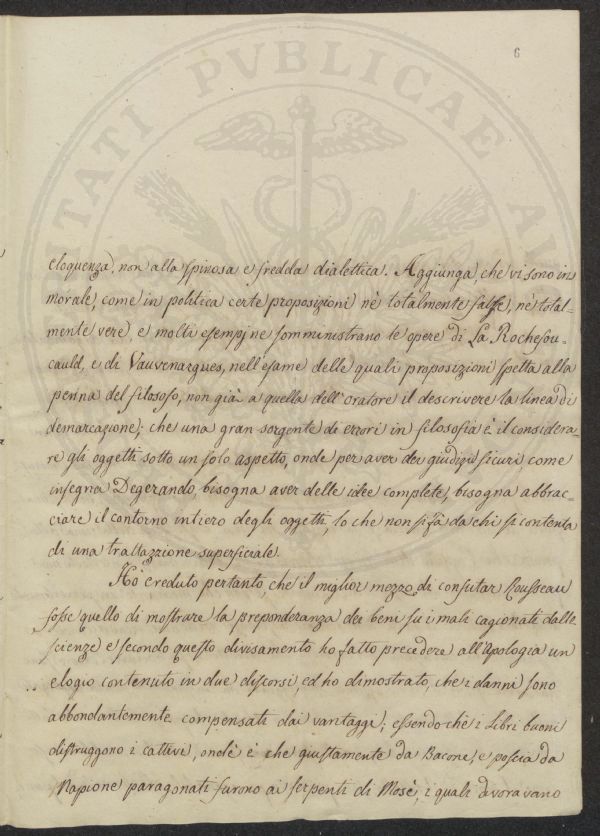 6
eloquenza, non alla spinosa e fredda dialettica. Aggiunga, che vi sono in
morale, come in politica certe proposizioni nè totalmente false, nè total-
mente vere, e molti esempj ne somministrano le opere di La Rochefou-
cauld, e di Vauvenargues, nell'esame delle quali proposizioni spetta alla
penna del filosofo, non già a quella dell'oratore il descrivere la linea di
demarcazione; che una gran sorgente di errori in filosofia è il considera-
re gli oggetti sotto un solo aspetto, onde per aver dei giudizii sicuri come
insegna Degerando, bisogna aver delle idee complete, bisogna abbrac-
ciare il contorno intiero degli oggetti, lo che non si fà da chi si contenta
di una trattazzione superficiale.
Hò creduto pertanto, che il miglior mezzo di confutar Rousseau
fosse quello di mostrare la preponderanza dei beni su i mali cagionati dalle
scienze e secondo questo divisamento ho fatto precedere all'Apologia un
elogio contenuto in due discorsi, ed ho dimostrato, che i danni sono
abbondantemente compensati dai vantaggi; essendochè i Libri buoni
distruggono i cattivi, ond'è è che giustamente da Bacone, e poscia da
Napione paragonati furono ai serpenti di Mosè, i quali divoravano
PVBLICAE